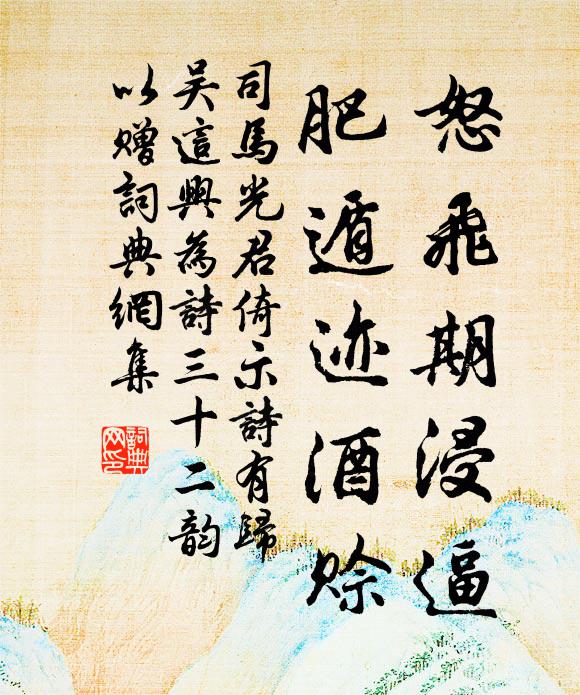 怒飛期浸逼
肥遁迹酒賒
司馬光君倚示詩有歸
吴這興為詩三十二韵
以贈詞典網集
詞典
网印